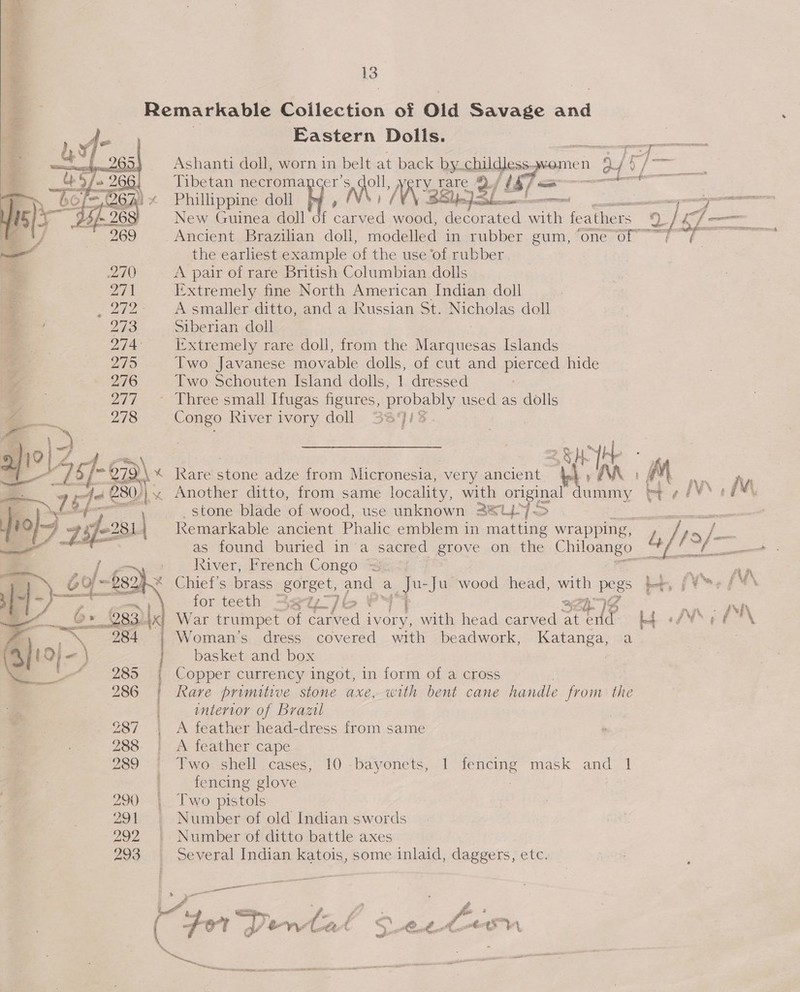 13
Remarkable Collection of Old Savage and
Eastern Dolls.
265 Ashanti doll, worn in belt at back by childless women 2/5/-
266 Tibetan necromancer's doll, very rare
267 Phillippine doll H.M.M.
268 New Guinea doll of carved wood, decorated with feathers
269 Ancient Brazilian doll, modelled in rubber gum, one of
the earliest example of the use of rubber
270 A pair of rare British Columbian dolls
271 Extremely fine North American Indian doll
272 A smaller ditto, and a Russian St. Nicholas doll
273 Siberian doll
274 Extremely rare doll, from the Marquesas Islands
275 Two Javanese movable dolls, of cut and pierced hide
276 Two Schouten Island dolls, 1 dressed
277 Three small Ifugas figures, probably used as dolls
278 Congo River ivory doll
279 Rare stone adze from Micronesia, very ancient H.M.M.
280 Another ditto, from same locality, with original dummy H.M.M.
stone blade of wood, use unknown
281 Remarkable ancient Phalic emblem in matting wrapping,
as found buried in a sacred grove on the Chiloango 4/10/-
River, French Congo
282 Chief's brass gorget, and a Ju-Ju wood head, with pegs H.M.M.
for teeth
283 War trumpet of carved ivory, with head carved at end H.M.M.
284 Woman's dress covered with beadwork, Katanga, a
basket and box
285 Copper currency ingot, in form of a cross
286 Rare primitive stone axe, with bent cane handle from the
interior of Brazil
287 A feather head-dress from same
288 A feather cape
289 Two shell cases, 10 bayonets, 1 fencing mask and 1
fencing glove
290 Two pistols
291 Number of old Indian swords
292 Number of ditto battle axes
293 Several Indian katois, some inlaid, daggers, etc.
For Dental Section